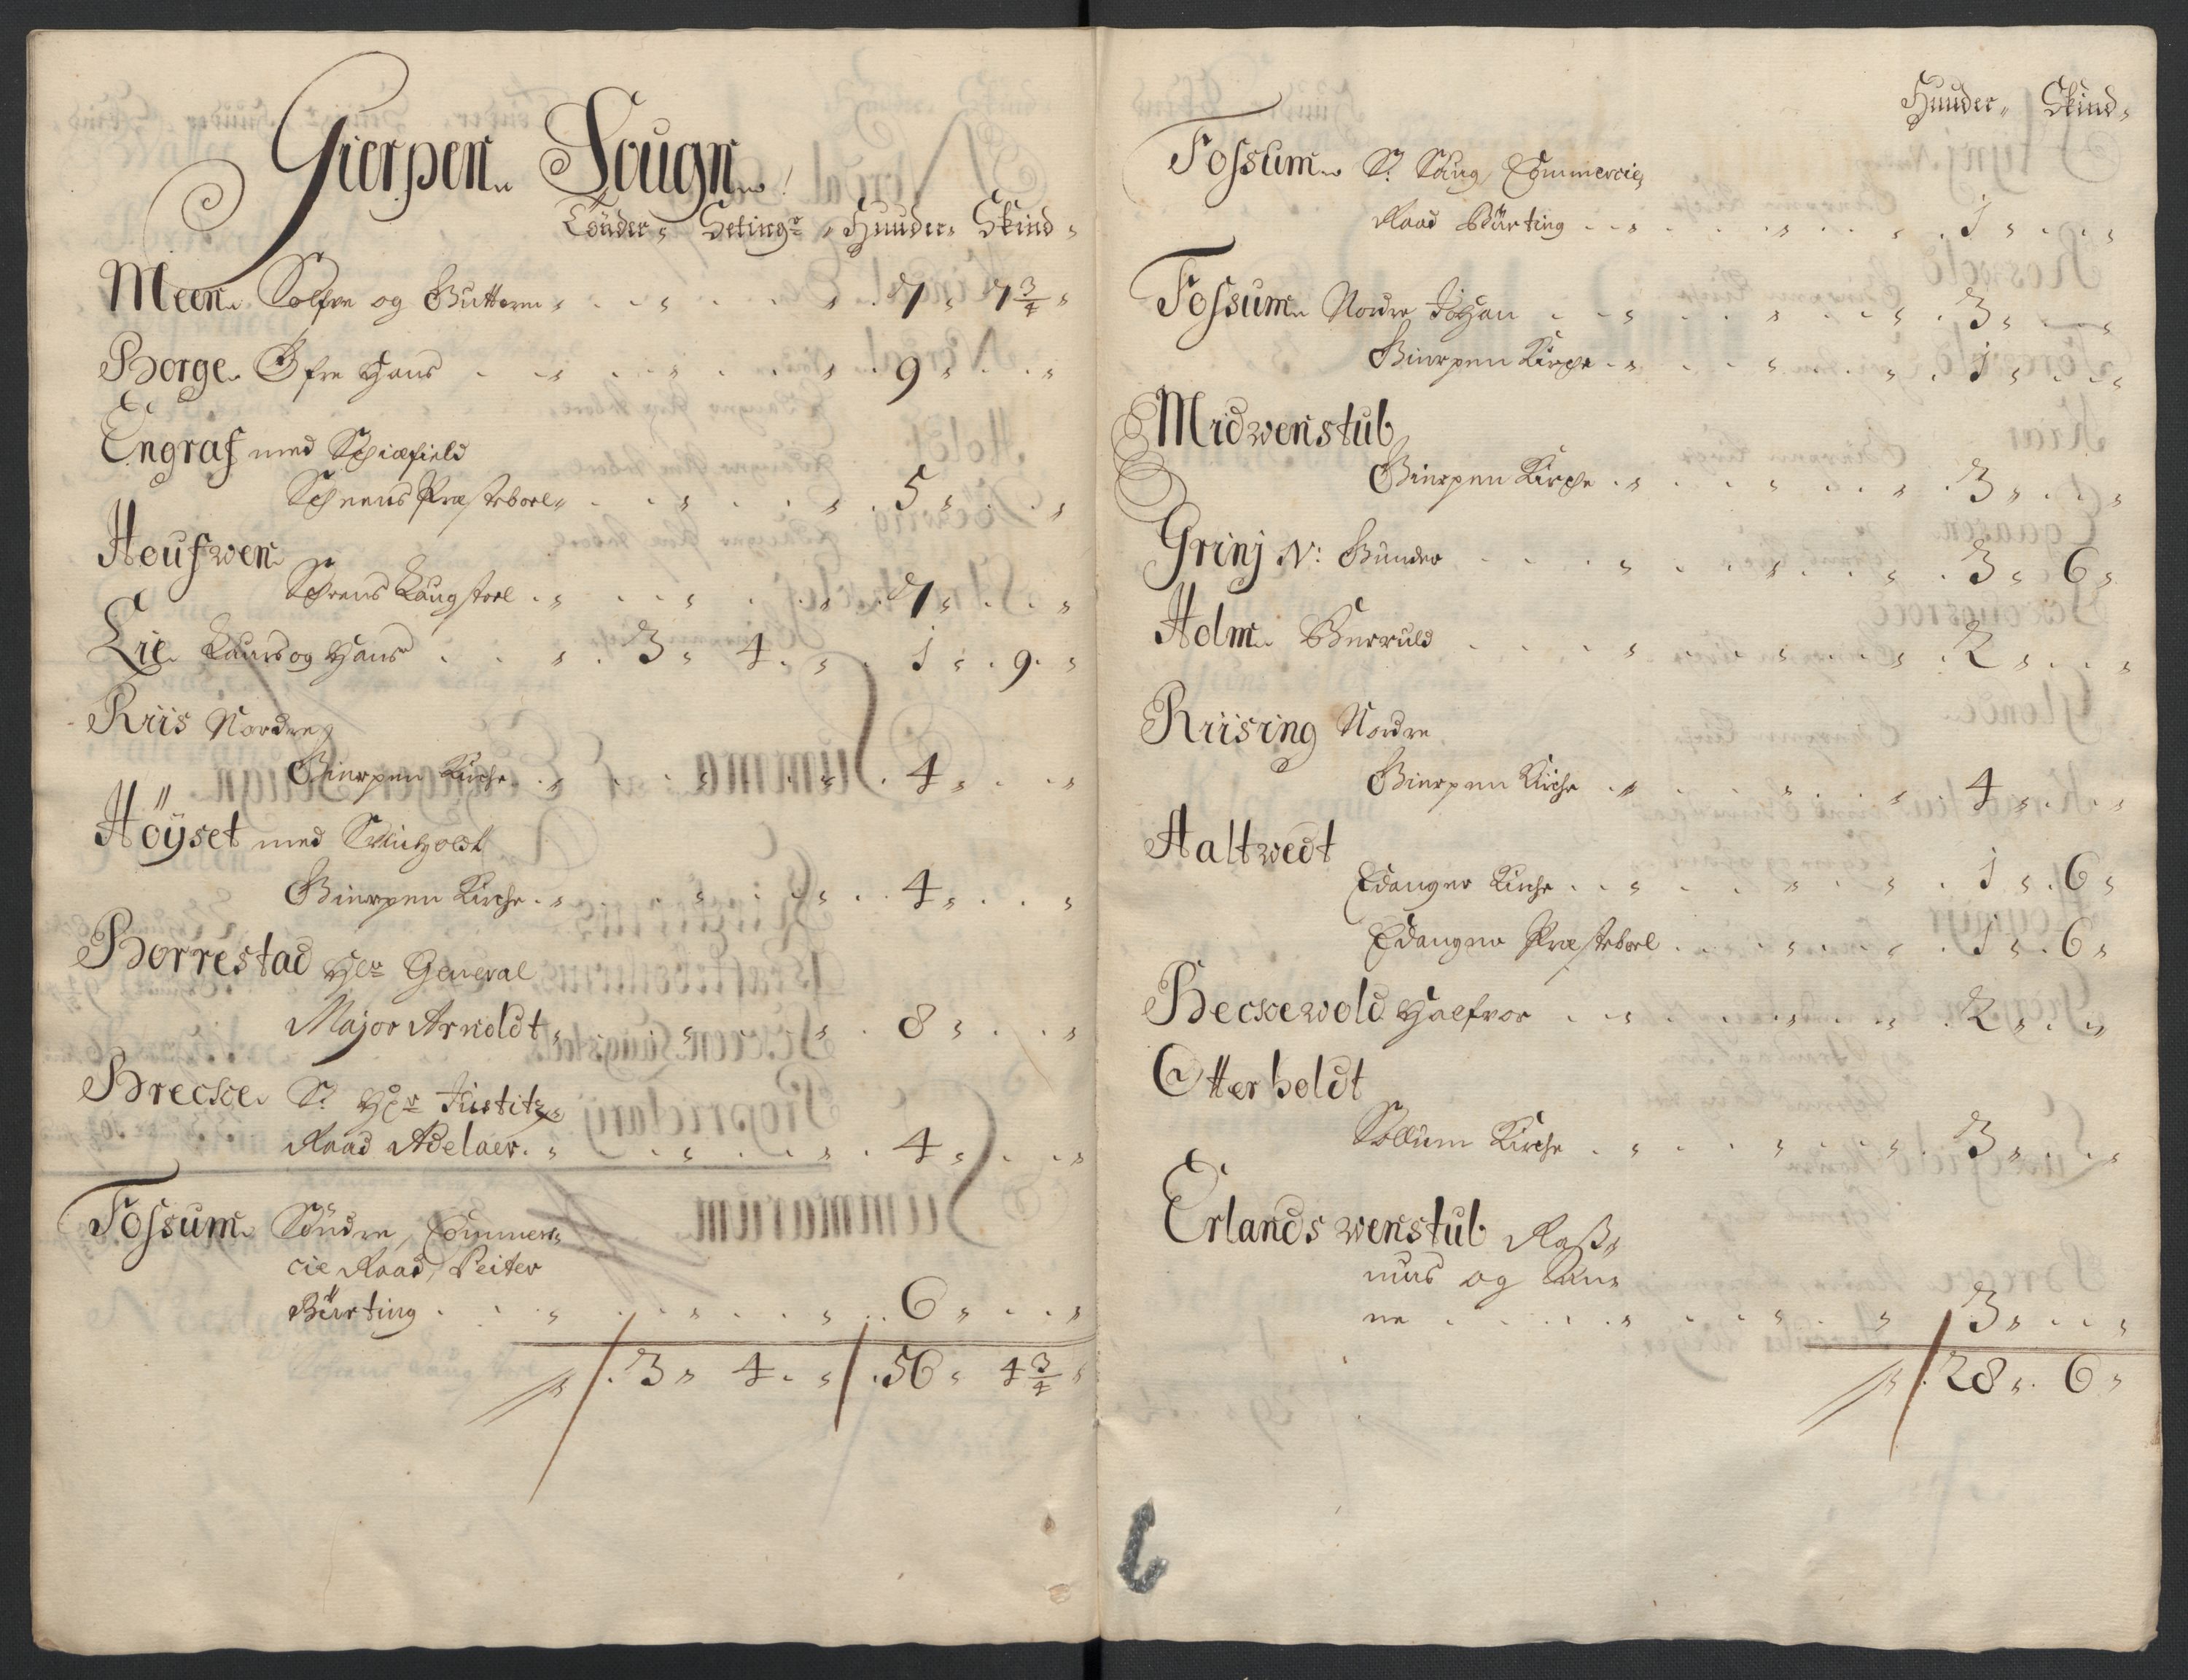 Gierpen Sougn
Tönder Setting Huuder Skind
Meen Solfve og Guttorm 7 7 3/4
Borge Øfre Hans 9
Engraf med Schiefield
Scheens Præsteboel 5
Houfwen
Scheens Laugstoel 7
Lie Laurs og Hans 3 4 1 9
Riis Nordre
Gierpen Kirche 4
Höyset med
Gierpen Kirche 4
Borrestad Hr General
Major Arnoldt 8
Brecke S: Hr Justitz
Raad Adelaer 4
Fossum Söndre, Commer
cie Raad, Peiter
Börting 6
3 4 56 4 3/4
Huuder Skind
Fossum S: Saug, Commercie
Raad Börting 1
Fossum Nordre Johan 3
Gierpen Kirche 1
Midwenstub
Gierpen Kirche 3
Grinj N: Gunder 3 6
Holm Gerruld 2
Riising Nordre
Gierpen Kirche 4
Aaltwedt
Edanger Kirche 1 6
Edanger Præsteboel 1 6
Beckewold Halfvor 2
Otterholdt
Sollum Kirche 3
Erlandswenstub Raß
mus og
ne 3
28 6